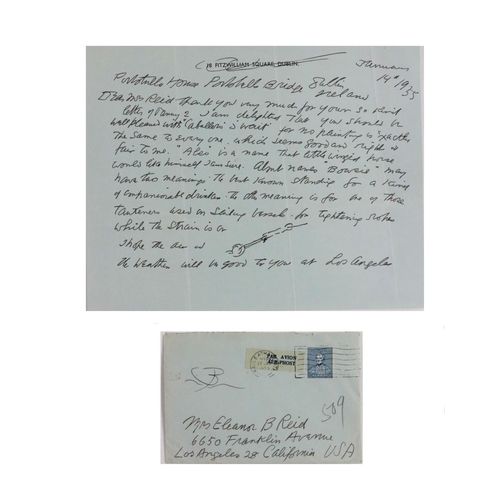 18 FITZWILLIAM SQUARE, DUBLIN.
January
14th 1955
Portobello House Portobello Bridge Dublin
Ireland
Dear Mrs Reid Thank you very much for your so kind
letter of Jany 2 I am delighted that you should be
well pleased with "Caballero's Wait" for no painting is exactly
the same to every one, which seems good and right &
fair to me. "Alec" is a name that little world horse
would like himself I am sure. About names "Bowsie" may
have two meanings. The best known standing for a kind
of companionable drinker. The other meaning is for one of those
tauteners used on sailing vessels for tightening ropes
while the strain is on
I hope the air &
the weather will be good to you at Los Angeles
PAR AVION
AER-PHOST
509
Mrs Eleanor B Reid
6650 Franklin Avenue
Los Angeles 28 California USA